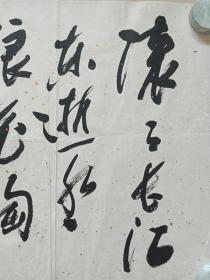 滚々长江
东逝水
浪花淘